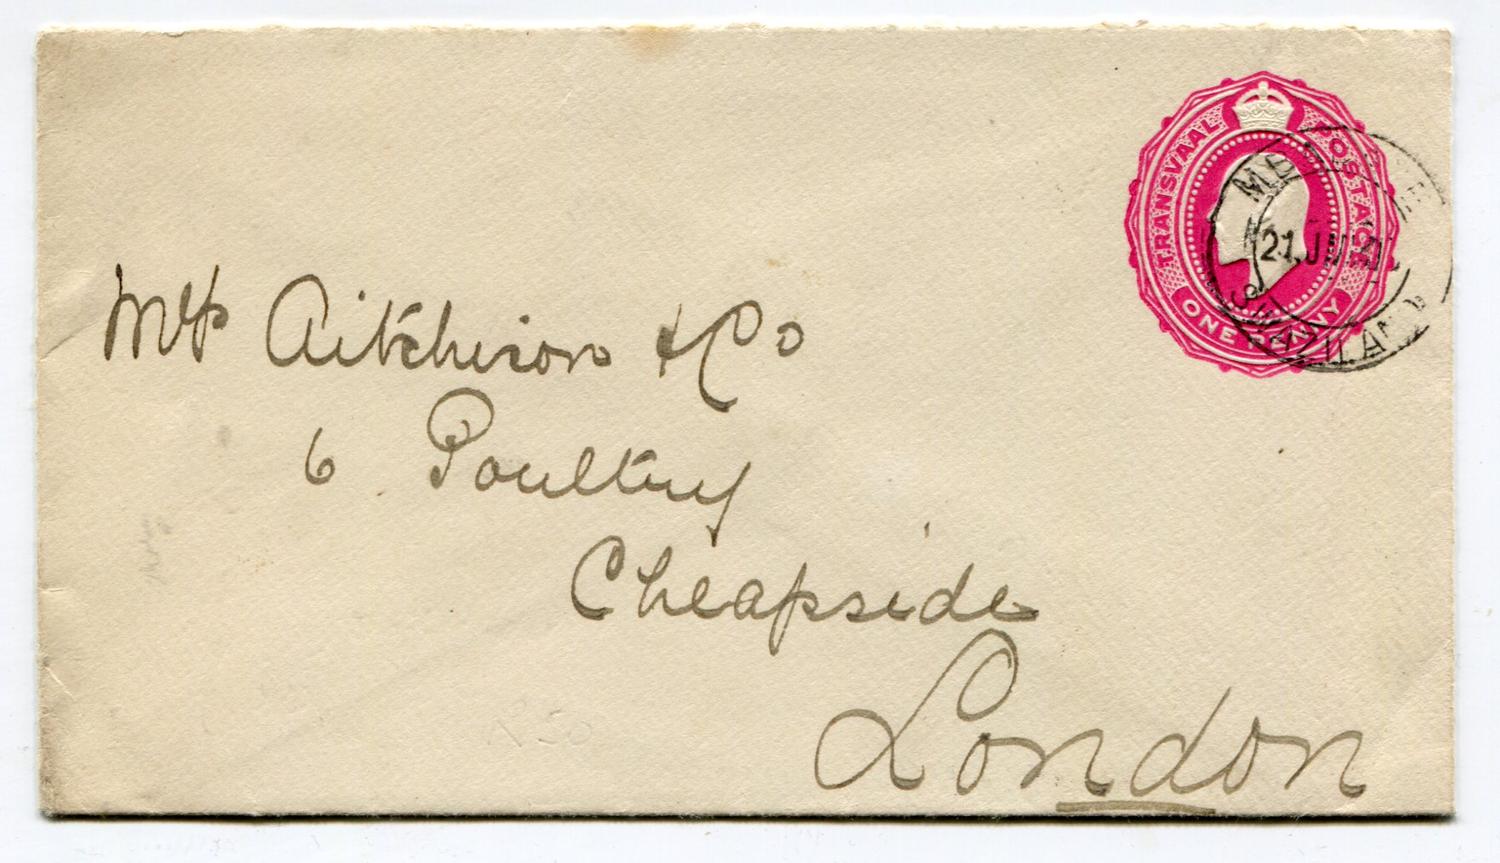 TRANSVAAL POSTAGE
ONE PENNY
21 JU
SWAZILAND
Mrs Aitchison & Co
6 Poultry
Cheapside
London